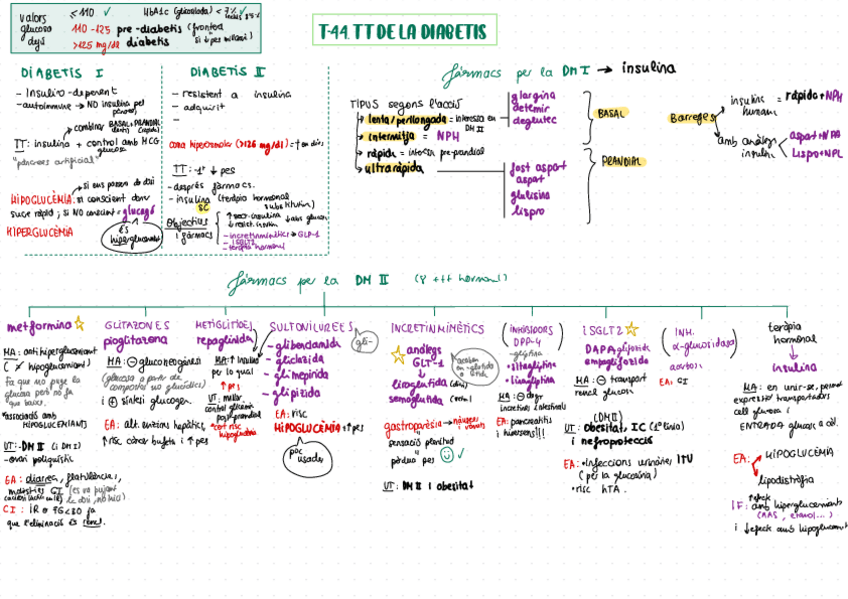 T-44. TT DE LA DIABETIS
valors glucosa dejú
≤110 ✓ HbA1c (glicosilada) < 7% ✓
110-125 pre-diabetis (frontera)
>125 mg/dl diabetis
DIABETIS I
- Insulino-dependent
- autoinmune → NO insulina pel pàncrees
combinar BASAL + PRANDIAL
TT: insulina + control amb HCG
glucosa
"pàncrees artificial"
HIPOGLUCÈMIA: si conscient donar
sucre ràpid; si NO conscient = glucagó
és hiperglucemiant
HIPERGLUCÈMIA
DIABETIS II
- resistent a insulina
- adquirit
-
TT: - 1r ↓ pes
- després fàrmacs.
- insulina (teràpia hormonal substitutiva)
SC
Objectius i fàrmacs
- incretinmimètics → GLP-1
- iSGLT2
- teràpia hormonal
fàrmacs per la DM I → insulina
TIPUS segons l'acció
lenta/perllongada = interessa en DM II
intermitja = NPH
ràpida = infecta pre-prandial
ultraràpida
glargina
detemir
degludec
BASAL
fast aspart
aspart
glulisina
lispro
PRANDIAL
Barreges
insulina humana = ràpida + NPH
amb anàlegs insulina
aspart + NPA
Lispro + NPL
fàrmacs per la DM II
metformina
MA: antihiperglucemiant
( hipoglucemiant)
fa que no puge la
glucosa però no fa
que baixe.
*associació amb
HIPOGLUCEMIANTS
UT: - DM II (i DM I)
- ovari poliquístic
EA: diarrea, flatulències,
molèsties GI
CI: IR o FG<30 ja
que l'eliminació és renal.
GLITAZONES
pioglitazona
MA: ⊖ gluconeogènesi
(glucosa a partir de
compostos no glucídics)
i ⊕ síntesi glucogen.
EA: alt. enzims hepàtics,
↑ risc càncer bufeta i ↑ pes
METIGLITIDES
repaglinida
MA: ↑ insulina
per lo qual
↑ pes
UT: millor
control glicèmic
postprandial
hipoglucèmia
SULFONILUREES
gli-
- glibenclamida
- gliclazida
- glimepirida
- glipizida
EA: risc
HIPOGLUCÈMIA i ↑ pes
poc usades
INCRETINMIMÈTICS
anàlegs
GLT-1
↓
liraglutida
semaglutida
gastroparèsia → nàusees i vòmits
sensació plenitud
pèrdua pes ✓
UT: DM II i obesitat
INHIBIDORS
DPP-4
-gliptina
• sitagliptina
• linagliptina
MA: ⊖ degr.
incretines intestinals
EA: pancreatitis
i hipersens!!!
iSGLT2
DAPAgliflozida
empagliflozida
MA: ⊖ transport
renal glucosa
(DM II)
UT: obesitat, IC (1ª línia)
i nefroprotecció
EA: • infeccions urinàries, ITU
(per la glucosúria)
• risc hTA.
INH.
α-glucosidasa
EA: GI
teràpia
hormonal
↓
insulina
MA: en unir-se, permet
expressió transportadors
cell glucosa i
ENTRADA glucosa a cèl.
EA:
HIPOGLUCÈMIA
lipodistròfia
IF: ↑efecte amb hiperglucemiants
(AAS, etanol...)
i ↓efecte amb hipoglucemiants